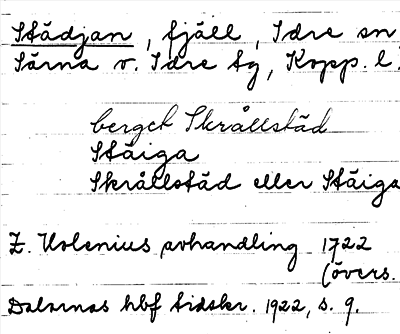 Städjan, fjäll, Idre sn
Särna o. Idre tg, Kopp. l.
berget Skrållstäd
Stäiga
Skrållstäd eller Stäiga
Z. Holenius avhandling 1722
(övers.
Dalarnas hbf tidskr. 1922, s. 9.